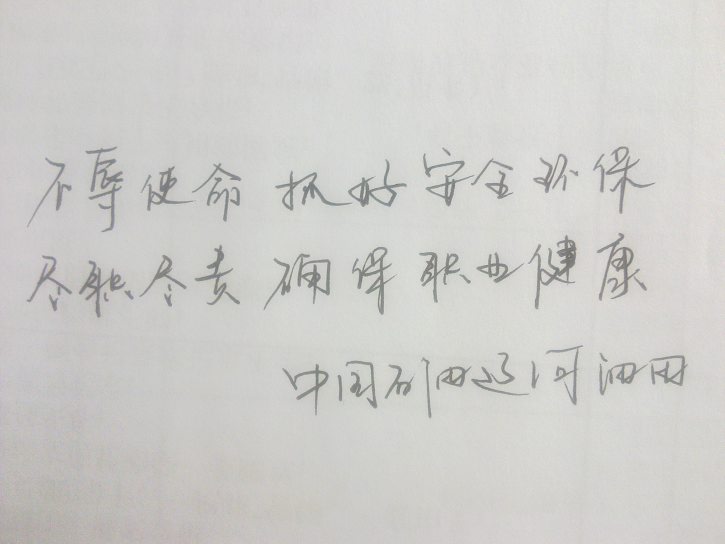 不辱使命 抓好安全环保
尽职尽责 确保职业健康
中国石油辽河油田